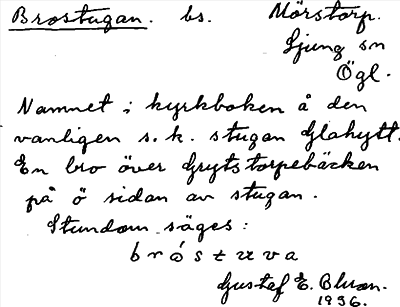 Brostugan. bs. Mörstorp.
Ljung sn
Ögl.
Namnet i kyrkboken å den
vanligen s. k. stugan Glahytt.
En bro över Grytstorpebäcken
på ö sidan av stugan.
Stundom säges:
bróstuva
Gustaf E. Bluan.
1936.